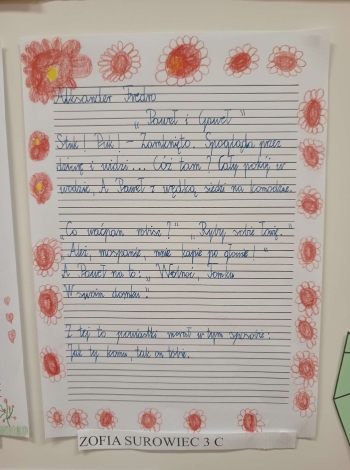 Aleksander Fredro
"Paweł i Gaweł"
Stuk! Puk! – Zamknięto. Spogląda przez
dziurę i widzi... Cóż tam? Cały pokój w
wodzie, A Paweł z wędką siedzi na komodzie.
„Co waćpan robisz?" „Ryby sobie łowię."
„Ależ, mospanie, mnie kapie po głowie!"
A Paweł na to: „Wolnoć, Tomku
W swoim domku."
Z tej to powiastki morał w tym sposobie:
Jak ty komu, tak on tobie.
ZOFIA SUROWIEC 3 C